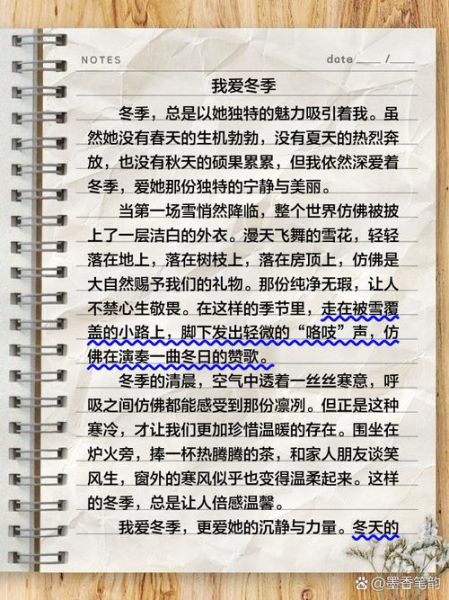 NOTES
date ____ /____
我爱冬季
冬季，总是以她独特的魅力吸引着我。虽
然她没有春天的生机勃勃，没有夏天的热烈奔
放，也没有秋天的硕果累累，但我依然深爱着
冬季，爱她那份独特的宁静与美丽。
当第一场雪悄然降临，整个世界仿佛被披
上了一层洁白的外衣。漫天飞舞的雪花，轻轻
落在地上，落在树枝上，落在房顶上，仿佛是
大自然赐予我们的礼物。那份纯净无瑕，让人
不禁心生敬畏。在这样的季节里，走在被雪覆
盖的小路上，脚下发出轻微的“咯吱”声，仿
佛在演奏一曲冬日的赞歌。
冬季的清晨，空气中透着一丝丝寒意，呼
吸之间仿佛都能感受到那份凛冽。但正是这种
寒冷，才让我们更加珍惜温暖的存在。围坐在
炉火旁，捧一杯热腾腾的茶，和家人朋友谈笑
风生，窗外的寒风似乎也变得温柔起来。这样
的冬季，总是让人倍感温馨。
我爱冬季，更爱她的沉静与力量。冬天的
@墨香笔韵